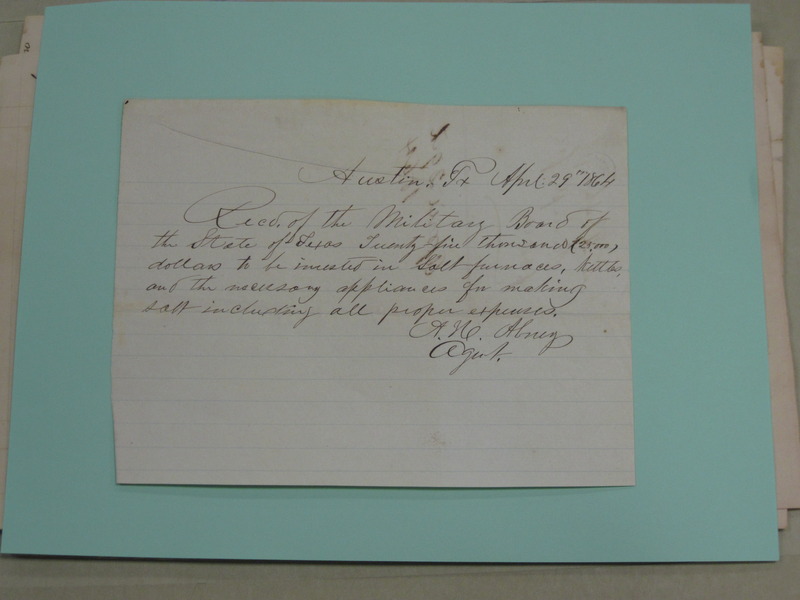 Austin, Tx April 29th 1864
Recd. of the Military Board of
the State of Texas Twenty five thousand
dollars to be invested in Salt furnaces, kettles,
and the necessary appliances for making
salt including all proper expenses.
A.H. Abney
Agent.